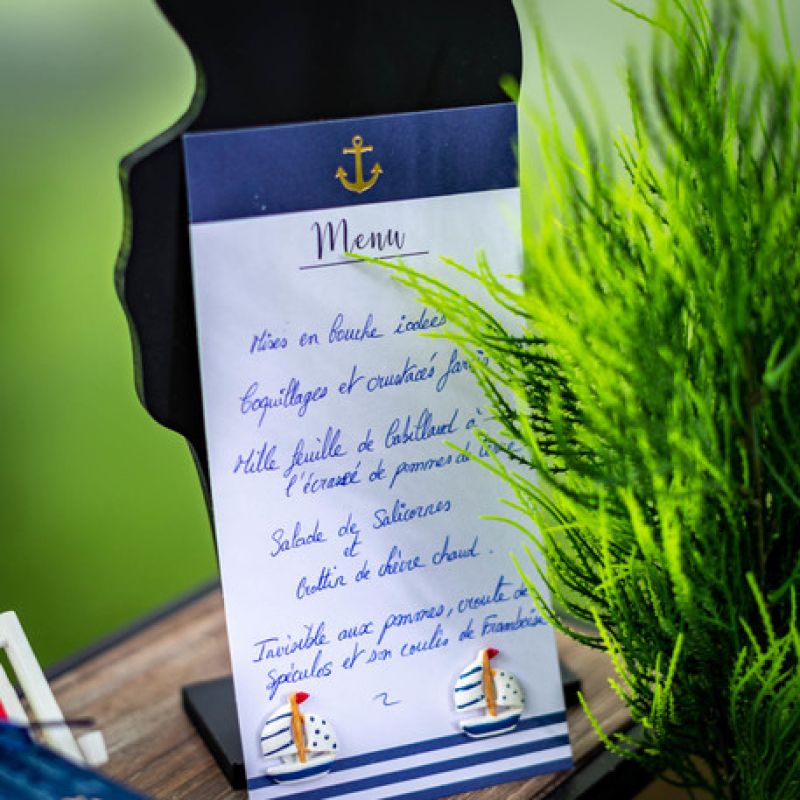 Menu
Mises en bouche iodées
Coquillages et crustacés farcis
Mille feuille de Cabillaud à
l'écrasé de pommes de terre
Salade de Salicornes
et
Crottin de chèvre chaud.
Invisible aux pommes, croute de
Spéculos et son coulis de Framboise